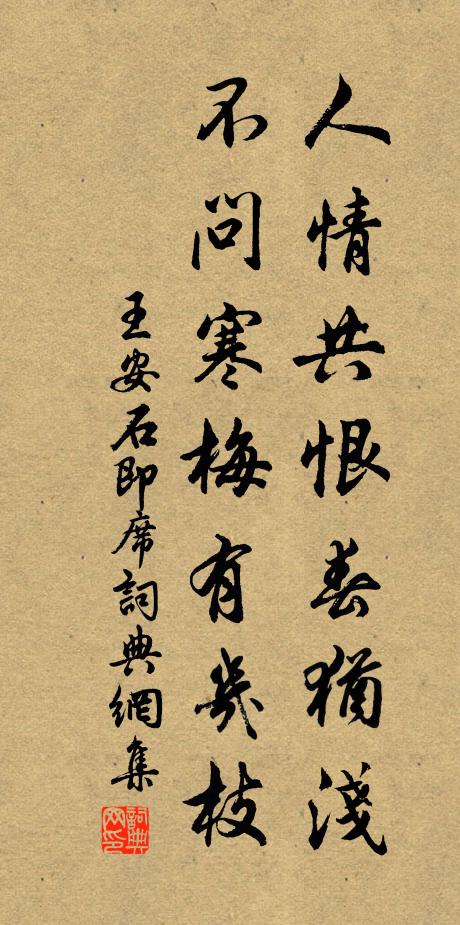 人情共恨春猶淺
不問寒梅有幾枝
王安石即席詞典網集
詞典網印